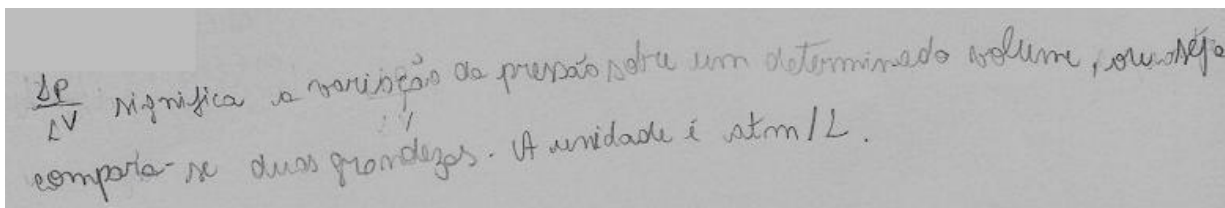 ΔP/ΔV significa a variação da pressão sobre um determinado volume, ou seja
compara-se duas grandezas. A unidade é atm/L.